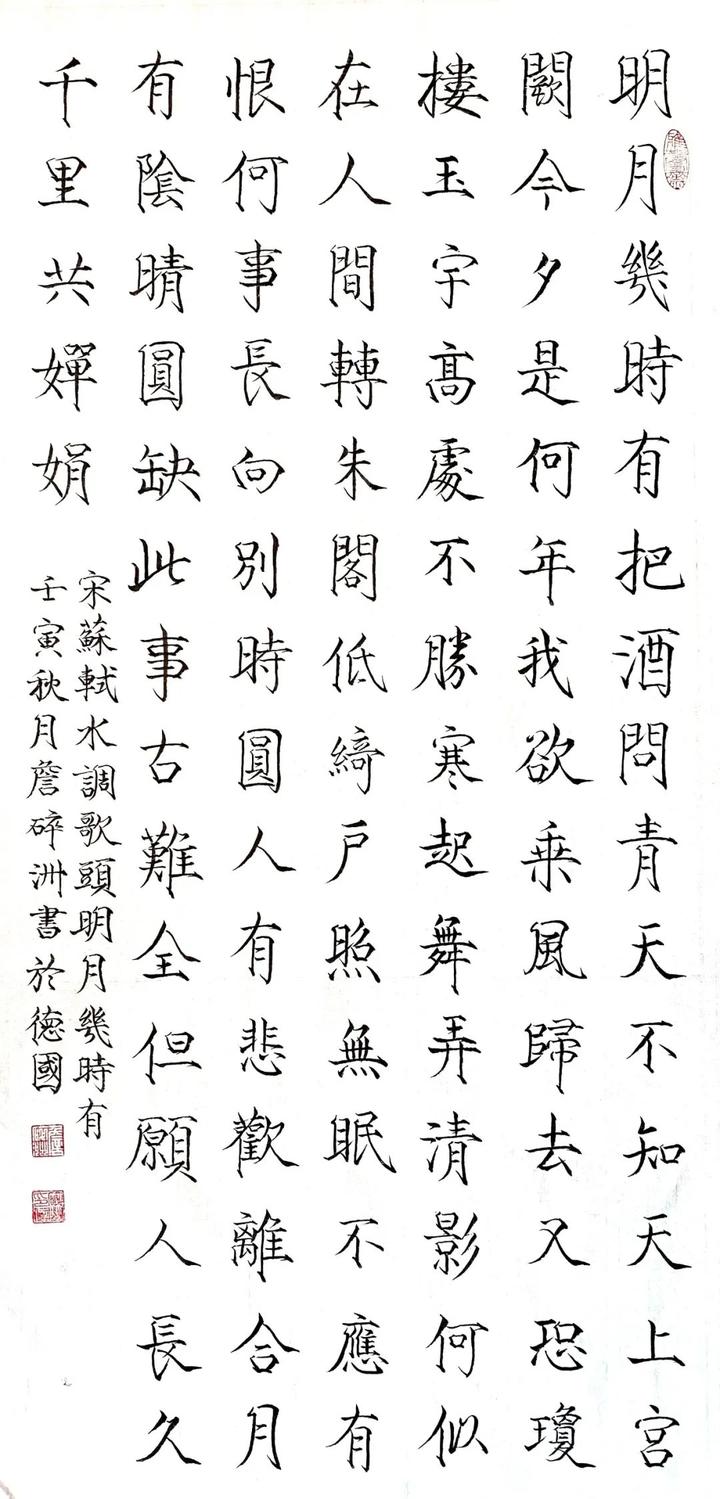 明月幾時有把酒問青天不知天上宮
闕今夕是何年我欲乗風歸去又恐瓊
樓玉宇高處不勝寒起舞弄清影何似
在人間轉朱閣低綺戶照無眠不應有
恨何事長向別時圓人有悲歡離合月
有陰晴圓缺此事古難全但願人長久
千里共嬋娟
宋蘇軾水調歌頭明月幾時有
壬寅秋月詹碎洲書於德國